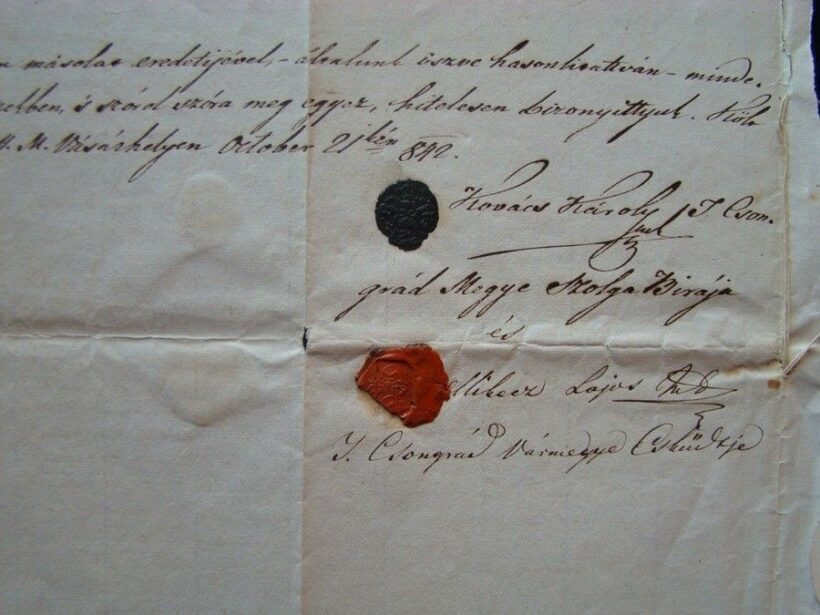 másolat eredetijével, - általunk öszve hasonlítatván - minde-
ekben, 's szóról szóra meg egyez, hitelesen bizonyíttyuk. Költ
H. M. Vásárhelyen October 21kén 842.
Kovács Károly T. Cson-
grád Megye Szolga Birája
és
Mikecz Lajos
T. Csongrád Vármegye Esküdtje